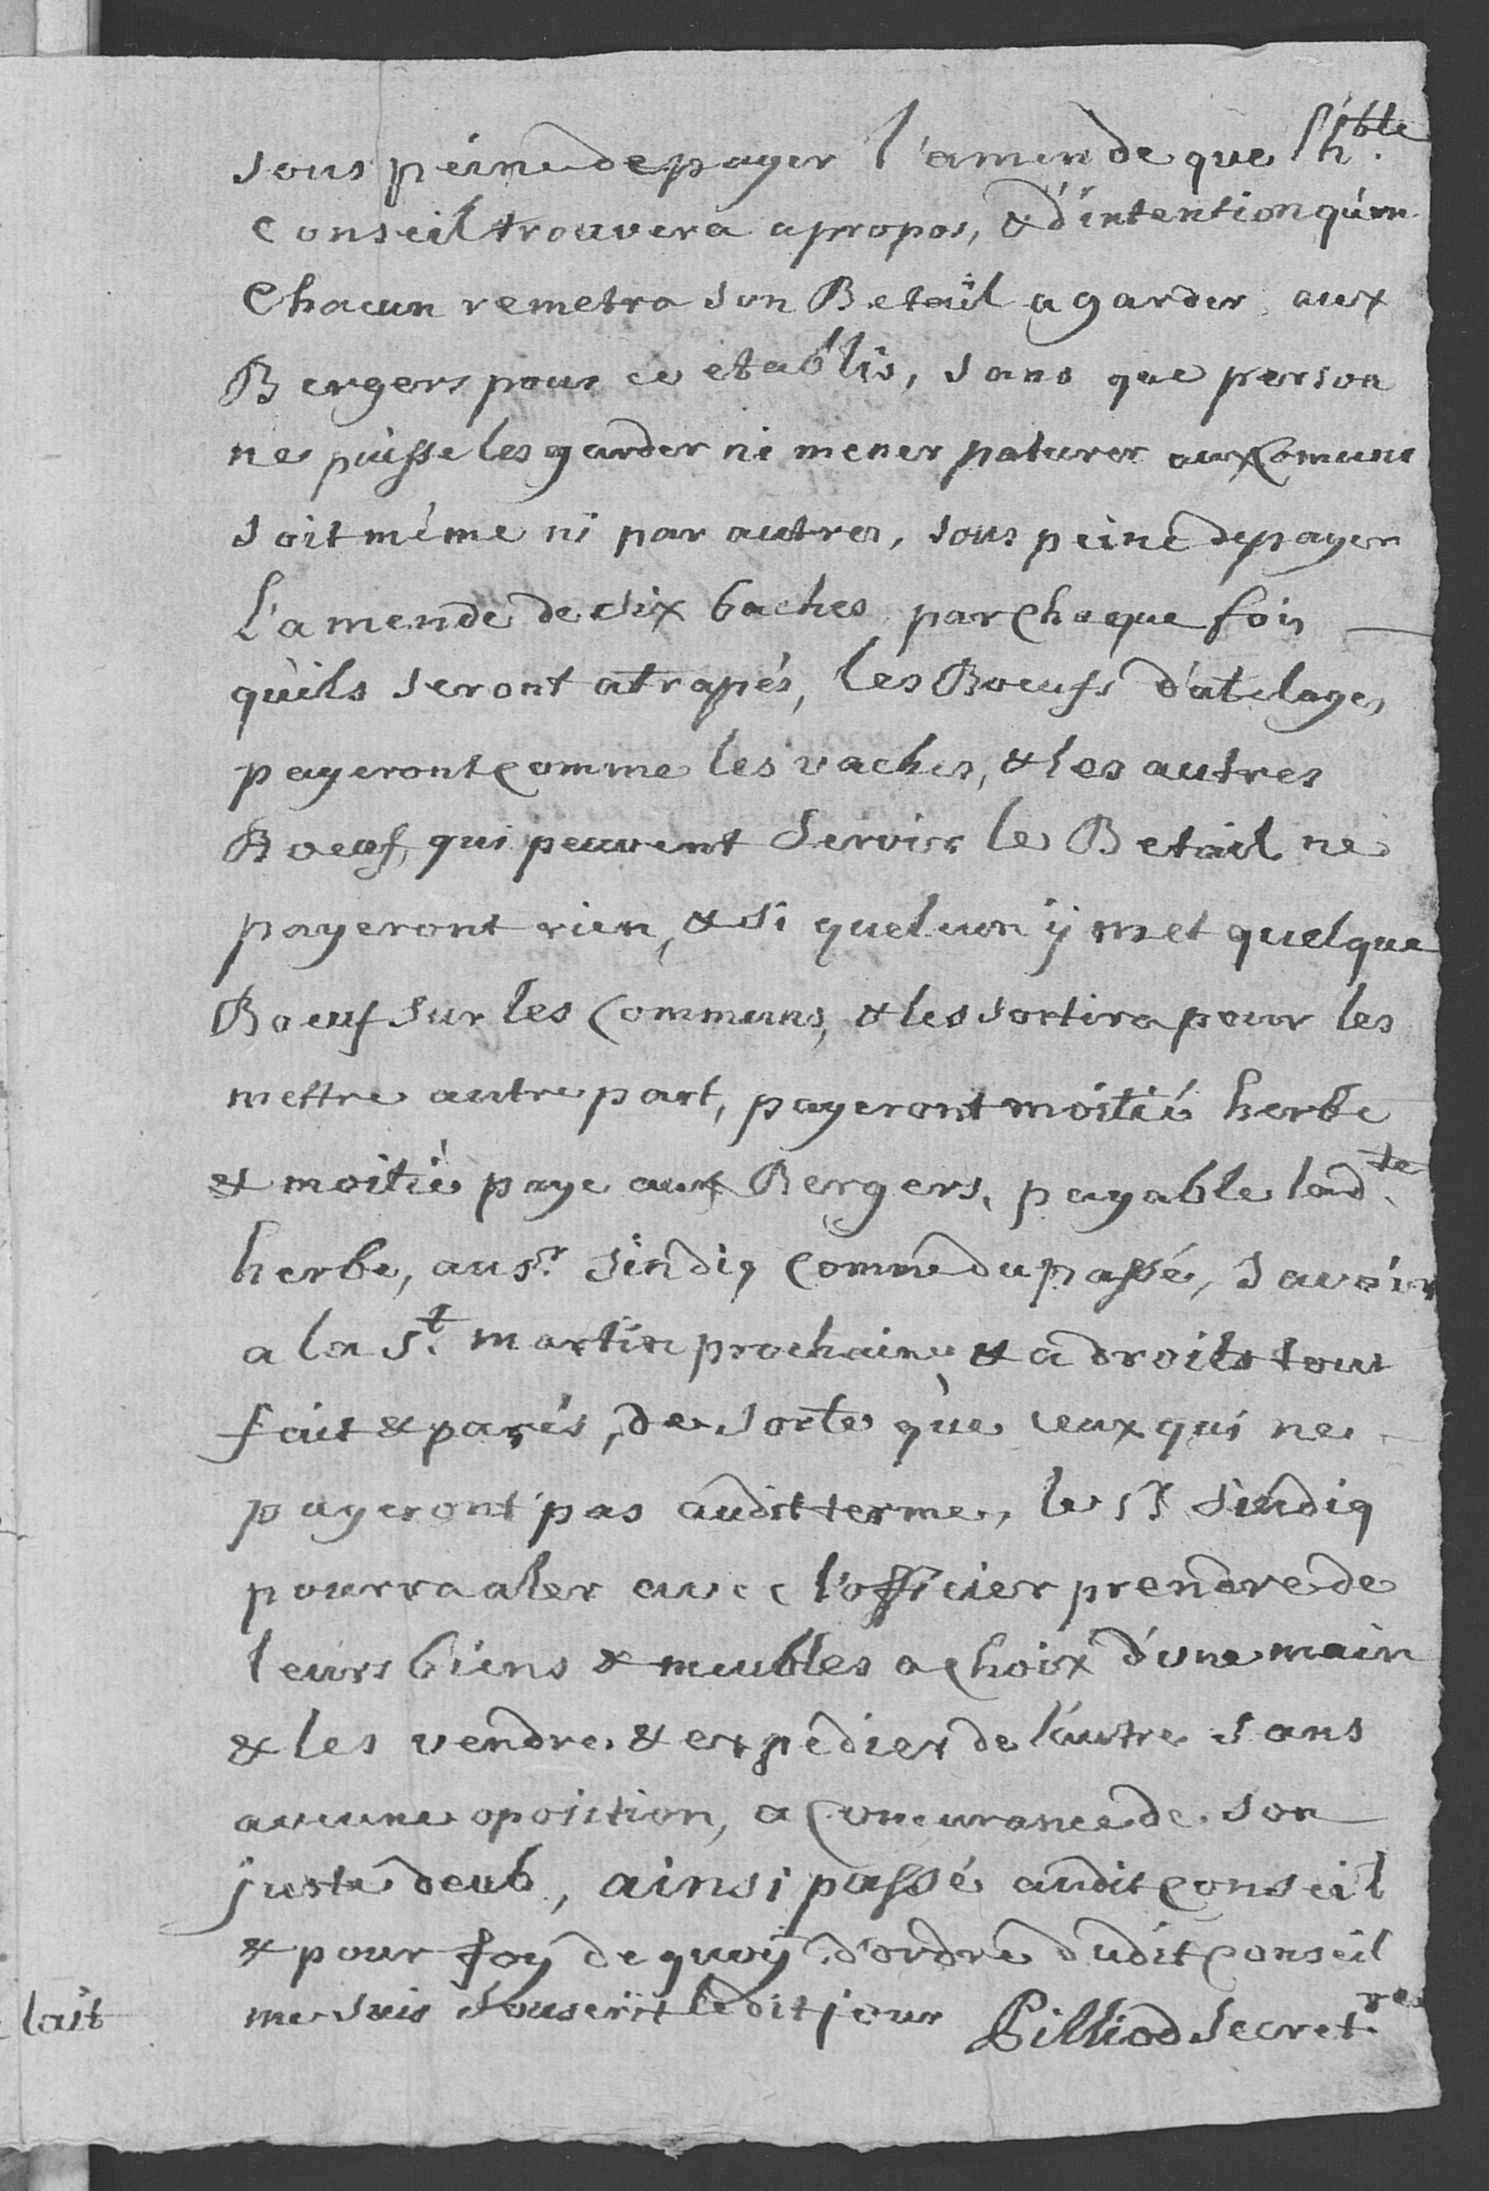 sous peine de payer l'amende que lh.ble
Conseil trouvera apropos, & d'intention qu'un
Chacun remetra son Betail a garder aux
Bergers pour ce etablis, sans que person
ne puisse les garder ni mener paturer aux Comuns
soit même ni par autres, sous peine de payer
l'amende de six baches par Chaque fois
qu'ils seront atrapés, les Boeufs d'atelages
payeront comme les vaches, & les autres
Boeuf, qui peuvent servir le Betail ne
payeront rien, & si quelcun ÿ met quelque
Boeuf sur les Communs, & les sortira pour les
mettre autre part, payeront moitié herbe
& moitié paye aux Bergers, payable lad.te
herbe, au sr. sindiq comme du passé, savoir
a la st. martin prochaine & a droits tout
fait & parés, de sorte que ceux qui ne
payeront pas audit terme, le sr sindiq
pourra aler avec l'officier prendre de
leurs biens & meubles a choix d'une main
& les vendre & expedier de l'autre sans
aucune oposition, a Concurance de son
juste deub, ainsi passé audit Conseil
& pour foy de quoy d'ordre dudit Conseil
me suis souscrit ledit jour Pilliod Secret.re
lait